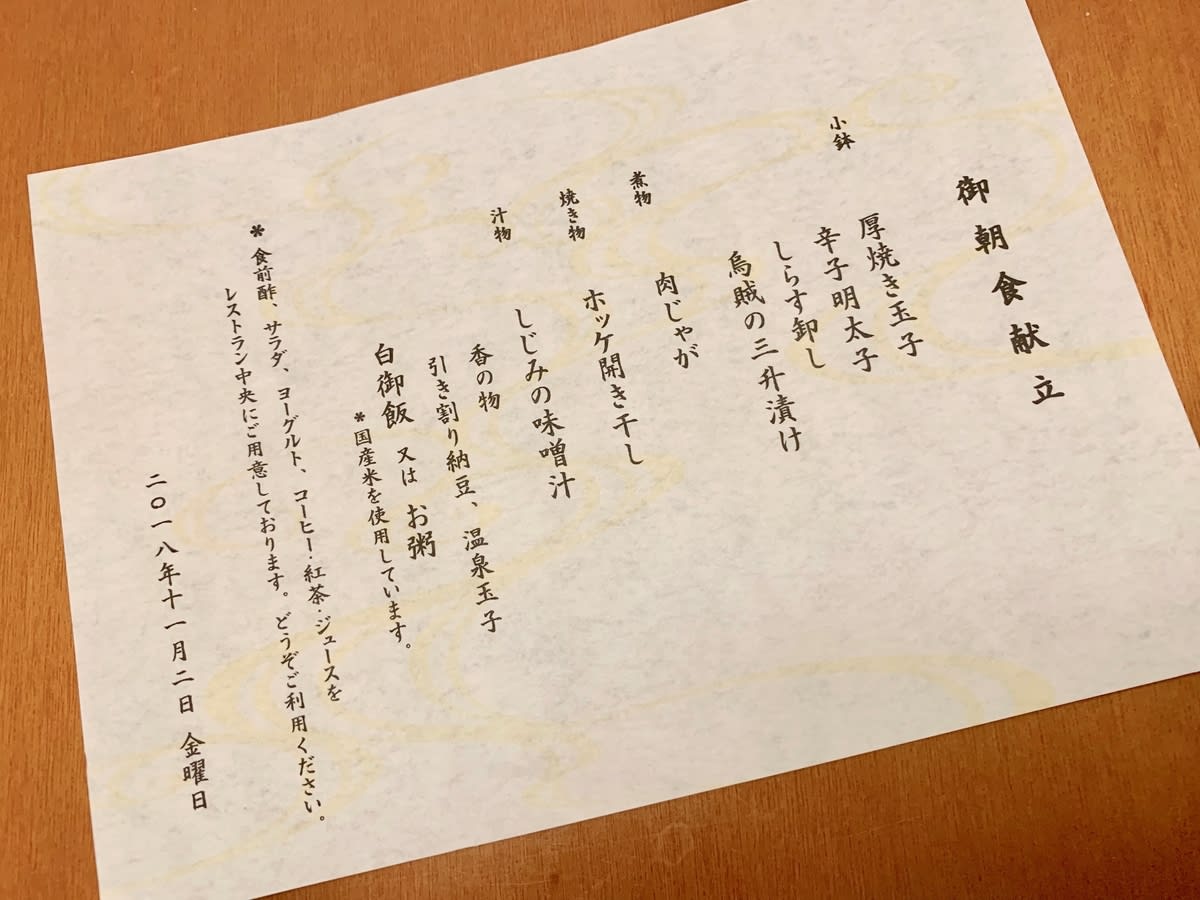 御朝食献立
小鉢
厚焼き玉子
辛子明太子
しらす卸し
烏賊の三升漬け
煮物
肉じゃが
焼き物
ホッケ開き干し
汁物
しじみの味噌汁
香の物
引き割り納豆、温泉玉子
白御飯 又は お粥
*国産米を使用しています。
*食前酢、サラダ、ヨーグルト、コーヒー・紅茶・ジュースを
レストラン中央にご用意しております。どうぞご利用ください。
二〇一八年十一月二日 金曜日